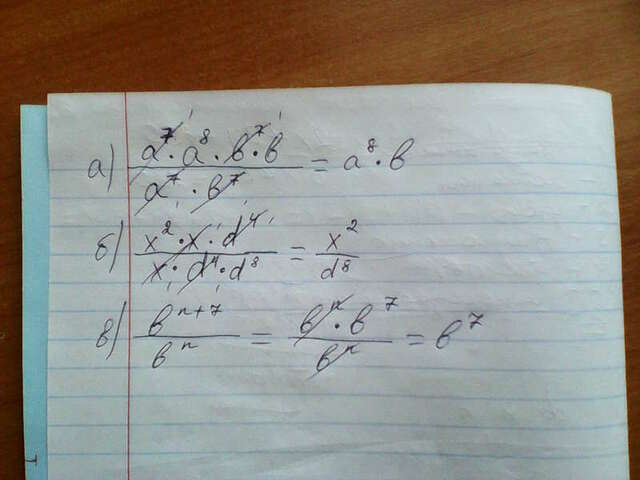 а) a⁷·a⁸·b⁷·b / a⁷·b⁷ = a⁸·b
б) x²·x·d⁴ / x·d⁴·d⁸ = x² / d⁸
в) bⁿ⁺⁷ / bⁿ = bⁿ·b⁷ / bⁿ = b⁷